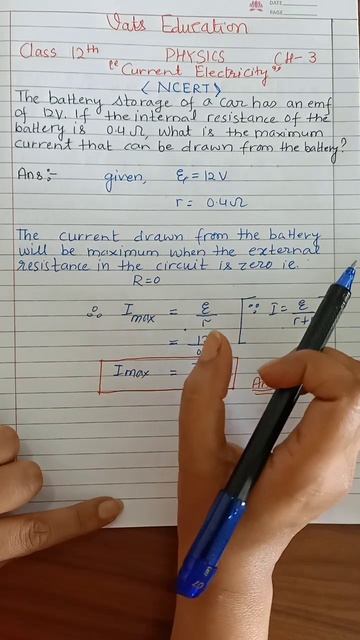 DATE
PAGE
Vats Education
Class 12th PHYSICS CH-3
"Current Electricity"
<NCERT>
The battery storage of a car has an emf
of 12V. If the internal resistance of the
battery is 0.4Ω, what is the maximum
current that can be drawn from the battery?
Ans:- given, ε = 12V
r = 0.4Ω
The current drawn from the battery
will be maximum when the external
resistance in the circuit is zero ie.
R=0
∴ Imax = ε/r [∵ I = ε
=
Imax =